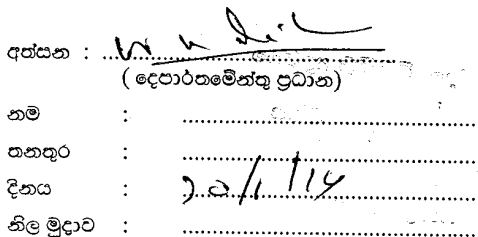 අත්සන :
( දෙපාර්තමේන්තු ප්‍රධාන)
නම :
තනතුර :
දිනය : 20/1/14
නිල මුද්‍රාව :